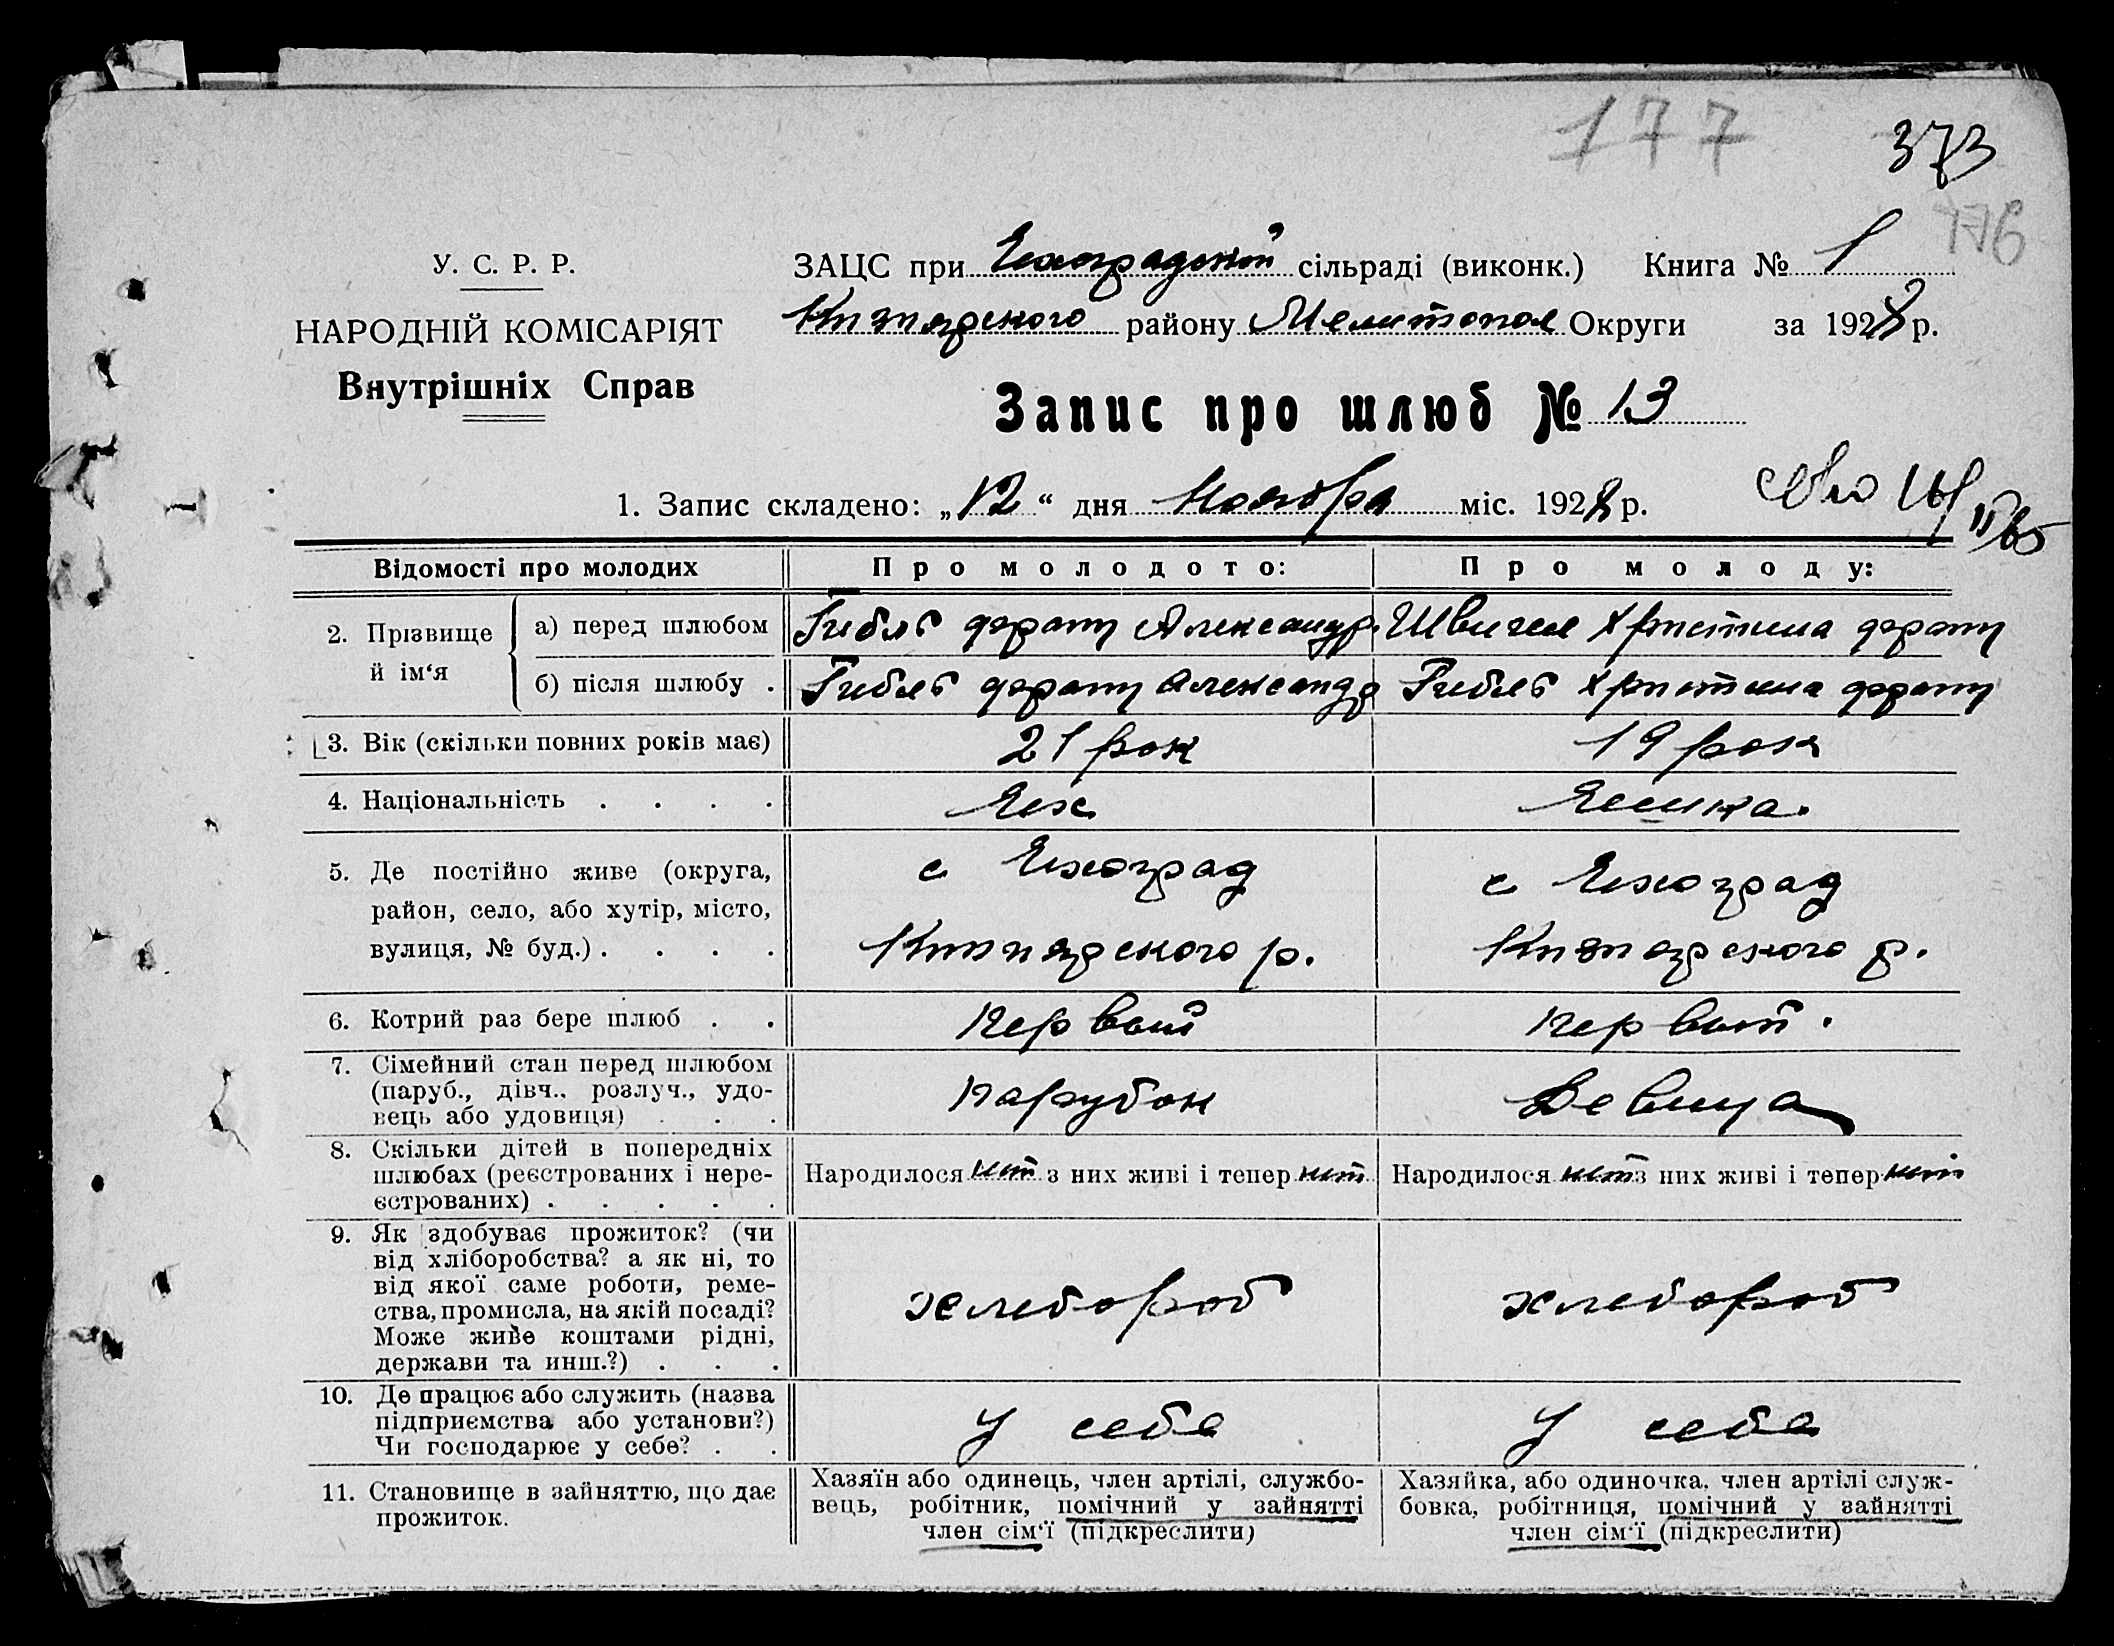 177
373
176
У. С. Р. Р.
НАРОДНІЙ КОМІСАРІЯТ
Внутрішніх Справ
ЗАЦС при сільраді (виконк.) Книга № 1
району Мелитополь Округи за 1928 р.
Запис про шлюб № 13
1. Запис складено: „12“ дня Ноября міс. 1928 р.
Відомості про молодих
Про молодого:
Про молоду:
2. Прізвище й ім‘я
а) перед шлюбом
Гибль Александр
Христина
б) після шлюбу .
Гибль Александр
Гибль Христина
3. Вік (скільки повних років має)
21 рок
19 рок
4. Національність . . . .
5. Де постійно живе (округа,
район, село, або хутір, місто,
вулиця, № буд.) . . . .
с
р.
с
р.
6. Котрий раз бере шлюб . .
первый
первый.
7. Сімейний стан перед шлюбом
(паруб., дівч., розлуч., удо-
вець або удовиця) . . .
парубок
Девица
8. Скільки дітей в попередніх
шлюбах (реєстрованих і нере-
єстрованих) . . . . .
Народилося нет з них живі і тепер нет
Народилося нет з них живі і тепер нет
9. Як здобуває прожиток? (чи
від хліборобства? а як ні, то
від якої саме роботи, реме-
ства, промисла, на якій посаді?
Може живе коштами рідні,
держави та инш.?) . . .
хлебороб
хлебороб
10. Де працює або служить (назва
підприємства або установи?)
Чи господарює у себе? . .
у себе
у себе
11. Становище в зайняттю, що дає
прожиток.
Хазяїн або одинець, член артілі, службо-
вець, робітник, помічний у зайнятті
член сім‘ї (підкреслити)
Хазяйка, або одиночка, член артілі служ-
бовка, робітниця, помічний у зайнятті
член сім‘ї (підкреслити)